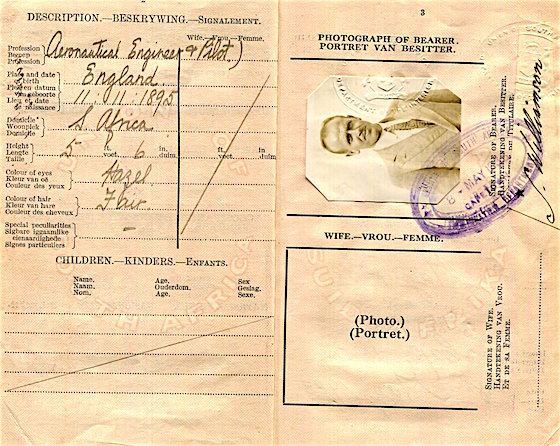 DESCRIPTION.—BESKRYWING.—SIGNALEMENT.
Wife.—Vrou.—Femme.
Profession
Beroep
Profession
Aeronautical Engineer & Pilot.)
Place and date
of birth
Plek en datum
van geboorte
Lieu et date
de naissance
England
11.11.1895
Domicile
Woonplek
Domicile
S. Africa
Height
Lengte
Taille
5 ft. voet. 6 in. duim.
ft. voet. in. duim.
Colour of eyes
Kleur van oë
Couleur des yeux
Hazel
Colour of hair
Kleur van hare
Couleur des cheveux
Fair
Special peculiarities
Sigbare liggaamlike
eienaardighede
Signes particuliers
—
CHILDREN.—KINDERS.—ENFANTS.
Name. Age. Sex
Naam. Ouderdom. Geslag.
Nom. Age. Sexe.
3
PHOTOGRAPH OF BEARER.
PORTRET VAN BESITTER.
SIGNATURE OF BEARER.
HANDTEKENING VAN BESITTER.
DU TITULAIRE.
Williamson
8 - MAY
WIFE.—VROU.—FEMME.
(Photo.)
(Portret.)
SIGNATURE OF WIFE.
HANDTEKENING VAN VROU.
ET DE SA FEMME.
SOUTH AFRICA